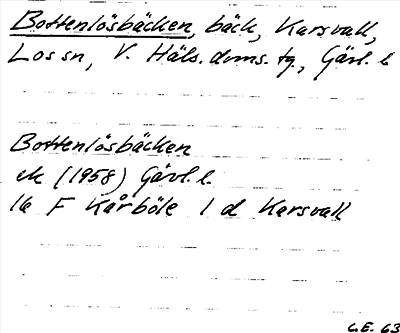 Bottenlösbäcken, bäck, Karsvall,
Los sn, V. Häls. doms. tg., Gävl. l.
Bottenlösbäcken
ek (1958) Gävl. l.
1a F Kårböle 1 d Karsvall
C.E. 63